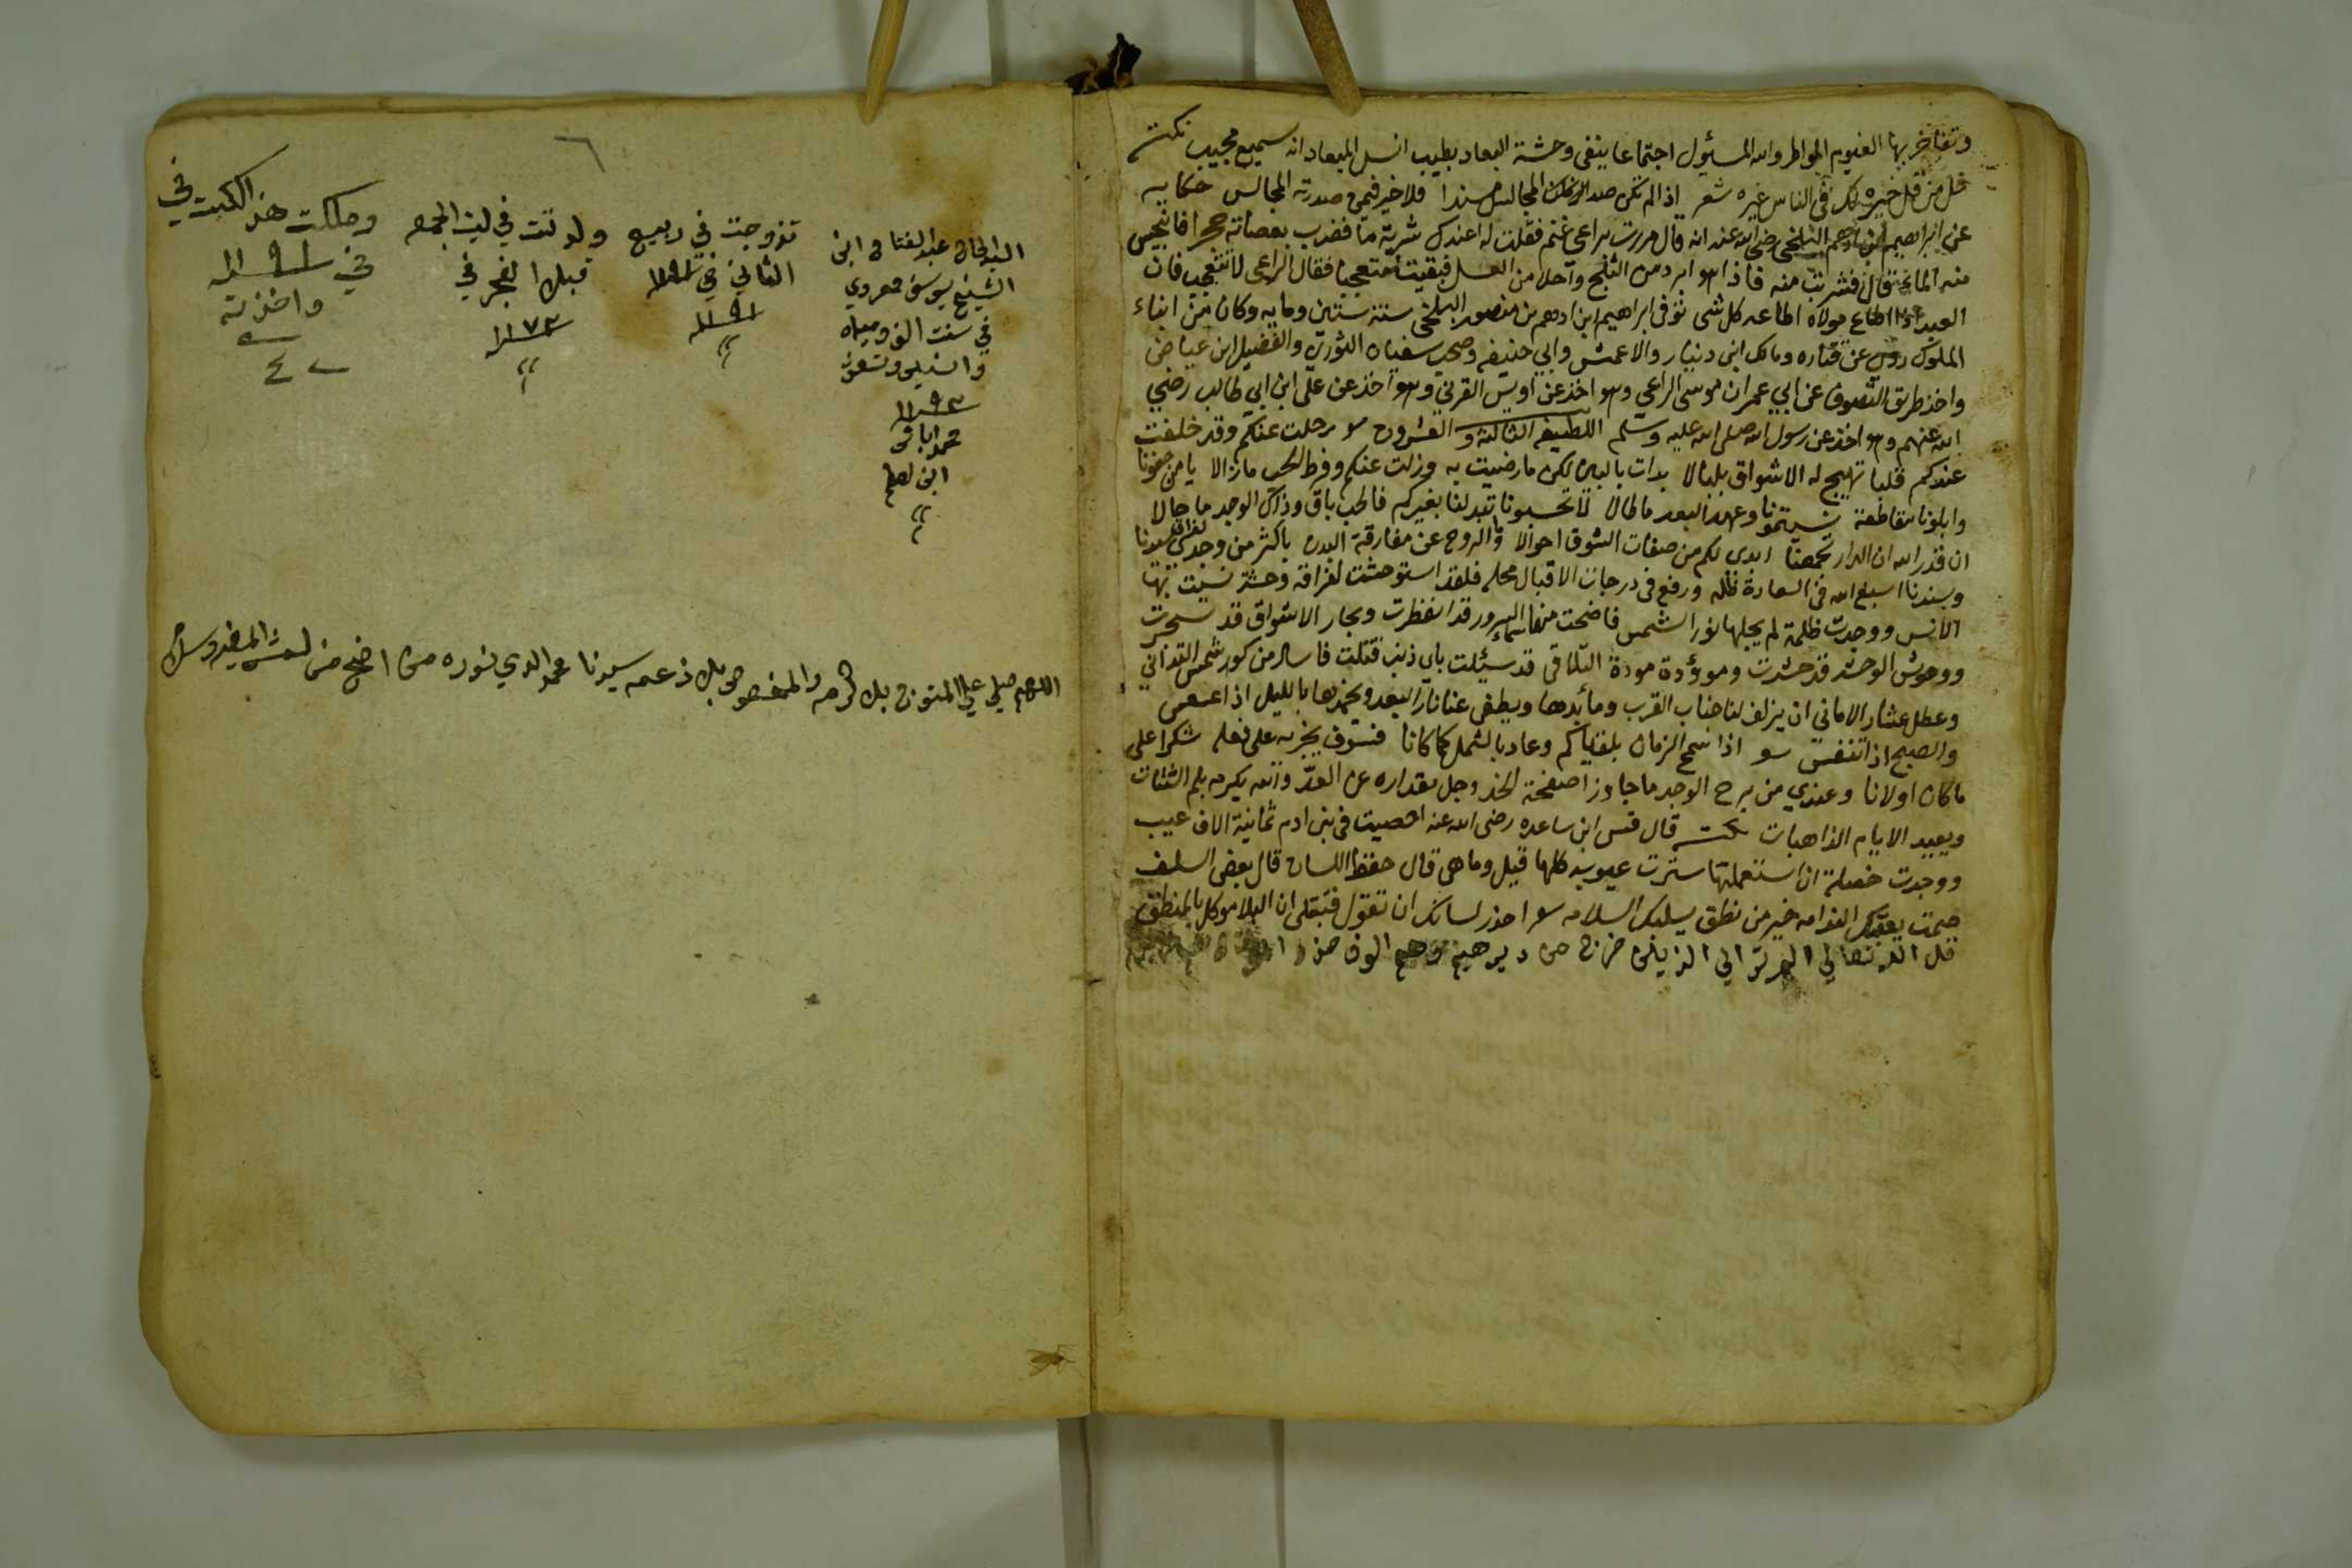 وتفاخر بها الغيوم المواطر والله المسئول اجتماعا ينفى وحشة البعاد بطيب انس الميعاد انه سميع مجيب نكتة
قل من قل خيره لك فى الناس غيره شعر اذا لم تكن صدر المجالس سندا فلا خير فيمن صدرته المجالس حكايه
عن ابراهيم ابن ادهم البلخى رضى الله عنه انه قال مررت براعى غنم فقلت له اعندك شربة ما فضرب بعصاته حجرا فانبجس
منه الماء قال فشربت منه فاذا هو ابرد من الثلج واحلا من العسل فبقيت متعجبا فقال الراعى لا تتعجب فان
العبد اذا اطاع مولاه اطاعه كل شى توفى ابراهيم ابن ادهم بن منصور البلخى سنة ستين ومايه وكان من ابناء
الملوك روى عن قتاده ومالك ابن دينار والاعمش وابي حنيفه وصحب سفيان الثورى والفضيل ابن عياض
واخذ طريق التصوف عن ابي عمران موسى الراعي وهو اخذ عن اويس القرني وهو اخذ عن على ابن ابي طالب رضي
الله عنهم وهو اخذ عن رسول الله صلى الله عليه وسلم اللطيفه الثالثة والعشرون سو رحلت عنكم وقد خلفت
عندكم قلبا تهيج له الاشواق بلبالا بدات بالبين لكن ما رضيت به وزلت عنكم وفرط الحب ما زالا يا من جفونا
وابلونا بقاطعة نسيتمونا وعهد البعد ما طالا لا تحسبونا تبدلنا بغيركم فالحب باق وذاك الوجد ما حالا
ان قدر الله ان الدار تجمعنا ابدى لكم من صفات الشوق احوالا والروح عن مفارقة البدن باكثر من وجدى لفراق سيدنا
وسندنا اسبغ الله فى السعادة ظله ورفع فى درجات الاقبال محله فلقد استوحشت لفراقه وحشة نسيت بها
الانس ووجدت ظلمة لم يجلها نور الشمس فاضحت منها سماء السرور قد انفطرت وبحار الاشواق قد سجرت
ووحوش الوحشه قد حشرت وموؤدة مودة التلاقى قد سئلت باى ذنب قتلت فاسال من كور شمس التدانى
وعطل عشار الامانى ان يزلف لنا جناب القرب وما بدها ويطفى عنا نار البعد ويخمدها بالليل اذا عسعس
والصبح اذا تنفس سو اذا سمح الزمان بلقياكم وعاد بالشمل كما كانا فسوف نجزيه على فعله شكرا على
ما كان اولانا وعندي من برح الوجد ما جاوز اصفحة الخد وجل مقداره عن العدّ والله يكرمه بلم الشتات
ويعيد الايام الذاهبات نكت قال قس ابن ساعده رضى الله عنه احصيت فى بنى ادم ثمانية الاف عيب
ووجدت خصلة ان استعملتها سترت عيوبه كلها قيل وما هى قال حفظ اللسان قال بعض السلف
صمت يعقبك الندامه خير من نطق يسلبك السلامه سو احذر لسانك ان تقول فتبتلى ان البلا موكل بالمنطق
قل الله تعالي الم تر الي الذين خرج من ديرهيم وهم الوف
البدالحان عبد الفتاح ابن
الشيخ يوسف معروي
في سنت الف ومياه
واثنين وتسعين
١١٩٢
محمد اباقي
ابن لطم
تزوجت في ربيع
الثاني في ١١٩١
١١٩١
ولدتت في ليت الجمعه
قبل الفجر في
١١٧٣
وملكت هذ الكبت في
في ١١٩١
واخذته
٤٠
اللهم صلي على المتوج بك كرمه والمخصوص بك زعمه سيدنا محمد الدي نوره من اضح من